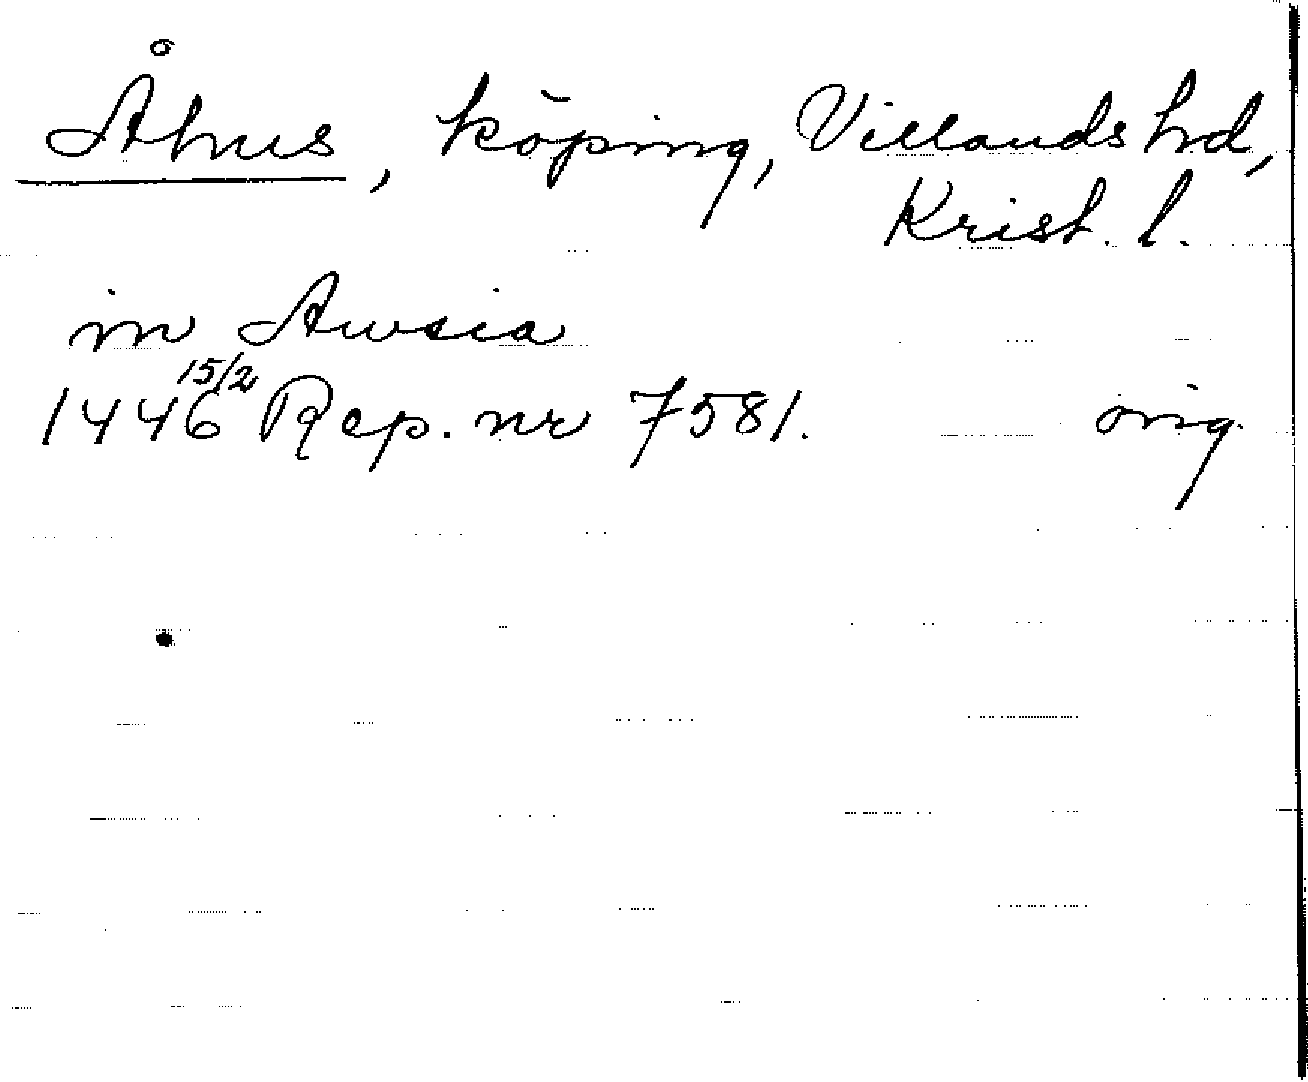 Åhus, köping, Villands hd,
Krist. l.
in Awsia
1446 15/2 Rep. nr 7581. orig.